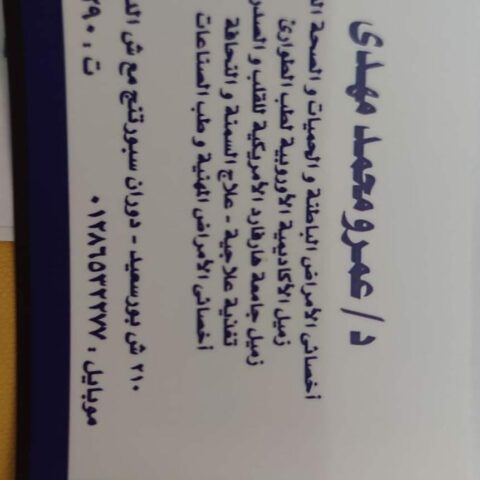 د/ عمرو محمد مهدى
أخصائى الأمراض الباطنة و الحميات و الصحة
زميل الأكاديمية الأوروبية لطب الطوارئ
زميل جامعة هارفارد الأمريكية للقلب و الصدر
تغذية علاجية - علاج السمنة و النحافة
أخصائى الأمراض المهنية و طب الصناعات
٢١٠ ش بورسعيد - دوران سبورتنج مع ش
موبايل : ٠١٢٨٦٥٣٢٢٧٧ ت :